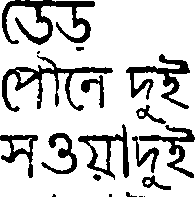 ডেড়
পৌনে দুই
সওয়াদুই